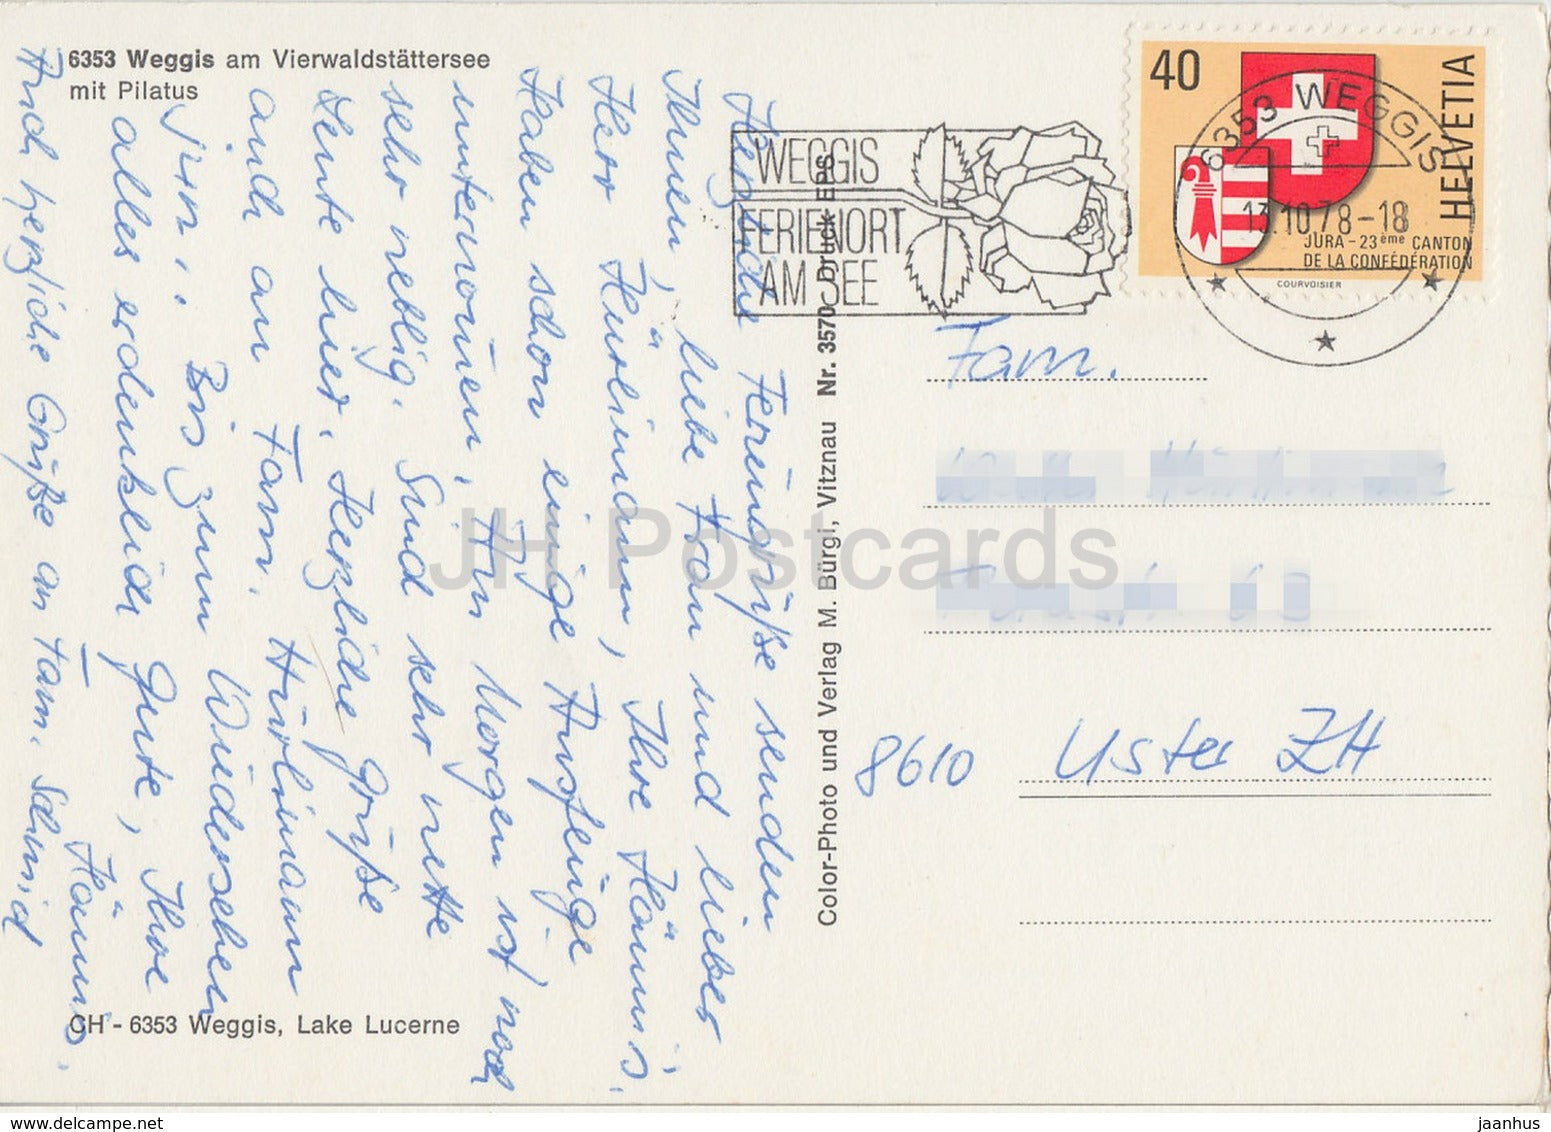 6353 Weggis am Vierwaldstättersee
mit Pilatus
Herzliche Feriengrüße senden
Ihnen, liebe Frau und lieber
Herr Hürlimann, Ihre Hämmis.
Haben schon einige Ausflüge
unternommen. Am Morgen ist noch
sehr neblig. Sind sehr nette
Leute hier. Herzliche Grüße
auch an Fam. Hürlimann
jun.. Bis zum Wiedersehen
alles erdenklich Gute, Ihre
Hämmis.
Auch herzliche Grüße an Fam. Schmid
CH - 6353 Weggis, Lake Lucerne
Color-Photo und Verlag M. Bürgi, Vitznau Nr. 3570 Druck EPS
WEGGIS
FERIENORT
AM SEE
40
HELVETIA
JURA - 23ème CANTON
DE LA CONFÉDÉRATION
COURVOISIER
6353 WEGGIS
13.10.78-18
Fam.
8610 Uster ZH
JH Postcards
www.delcampe.net
jaanhus